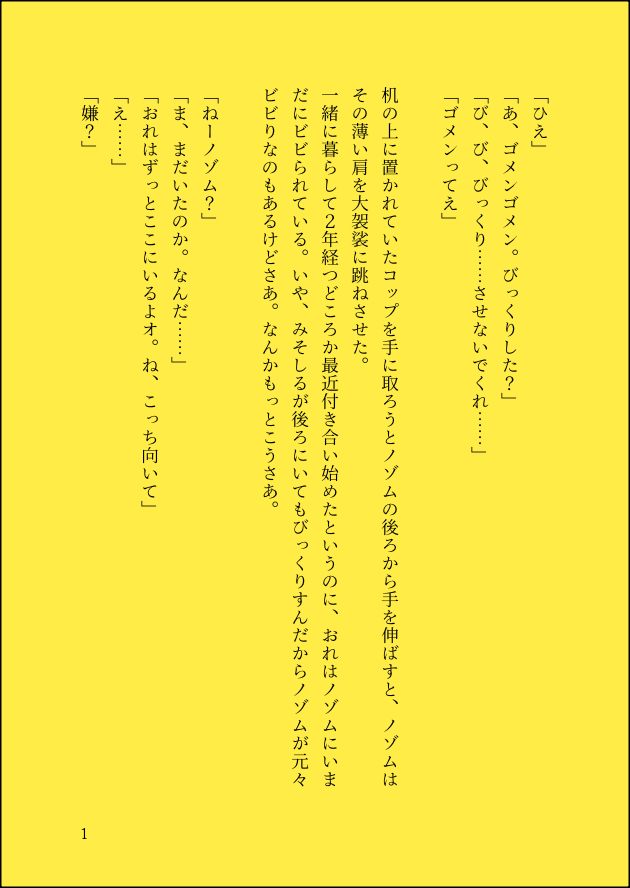 「ひえ」
「あ、ゴメンゴメン。びっくりした？」
「び、び、びっくり……させないでくれ……」
「ゴメンってえ」
机の上に置かれていたコップを手に取ろうとノゾムの後ろから手を伸ばすと、ノゾムは
その薄い肩を大袈裟に跳ねさせた。
一緒に暮らして２年経つどころか最近付き合い始めたというのに、おれはノゾムにいま
だにビビられている。いや、みそしるが後ろにいてもびっくりすんだからノゾムが元々
ビビりなのもあるけどさあ。なんかもっとこうさあ。
「ねーノゾム？」
「ま、まだいたのか。なんだ……」
「おれはずっとここにいるよオ。ね、こっち向いて」
「え……」
「嫌？」
1